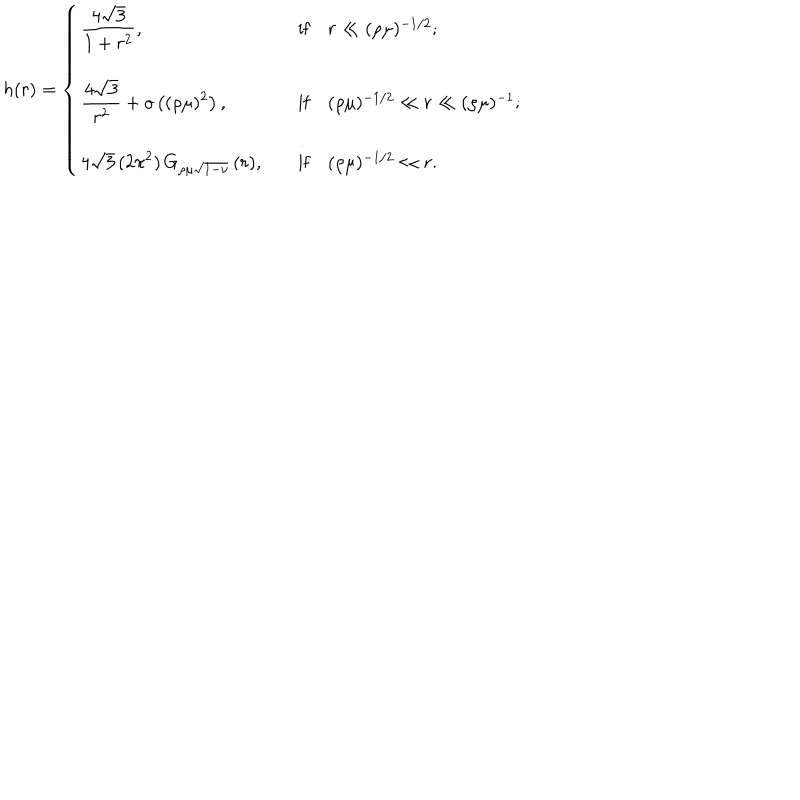 h(r) = \begin{cases} \dfrac{4\sqrt{3}}{1+r^2}, & \text{if } r \ll (\rho\mu)^{-1/2}; \\ \dfrac{4\sqrt{3}}{r^2} + o\left((\rho\mu)^2\right), & \text{if } (\rho\mu)^{-1/2} \ll r \ll (\rho\mu)^{-1}; \\ 4\sqrt{3}\,(2\pi^2)\,G_{\rho\mu\sqrt{1-\nu}}\,(r), & \text{if } (\rho\mu)^{-1/2} \ll r. \end{cases}